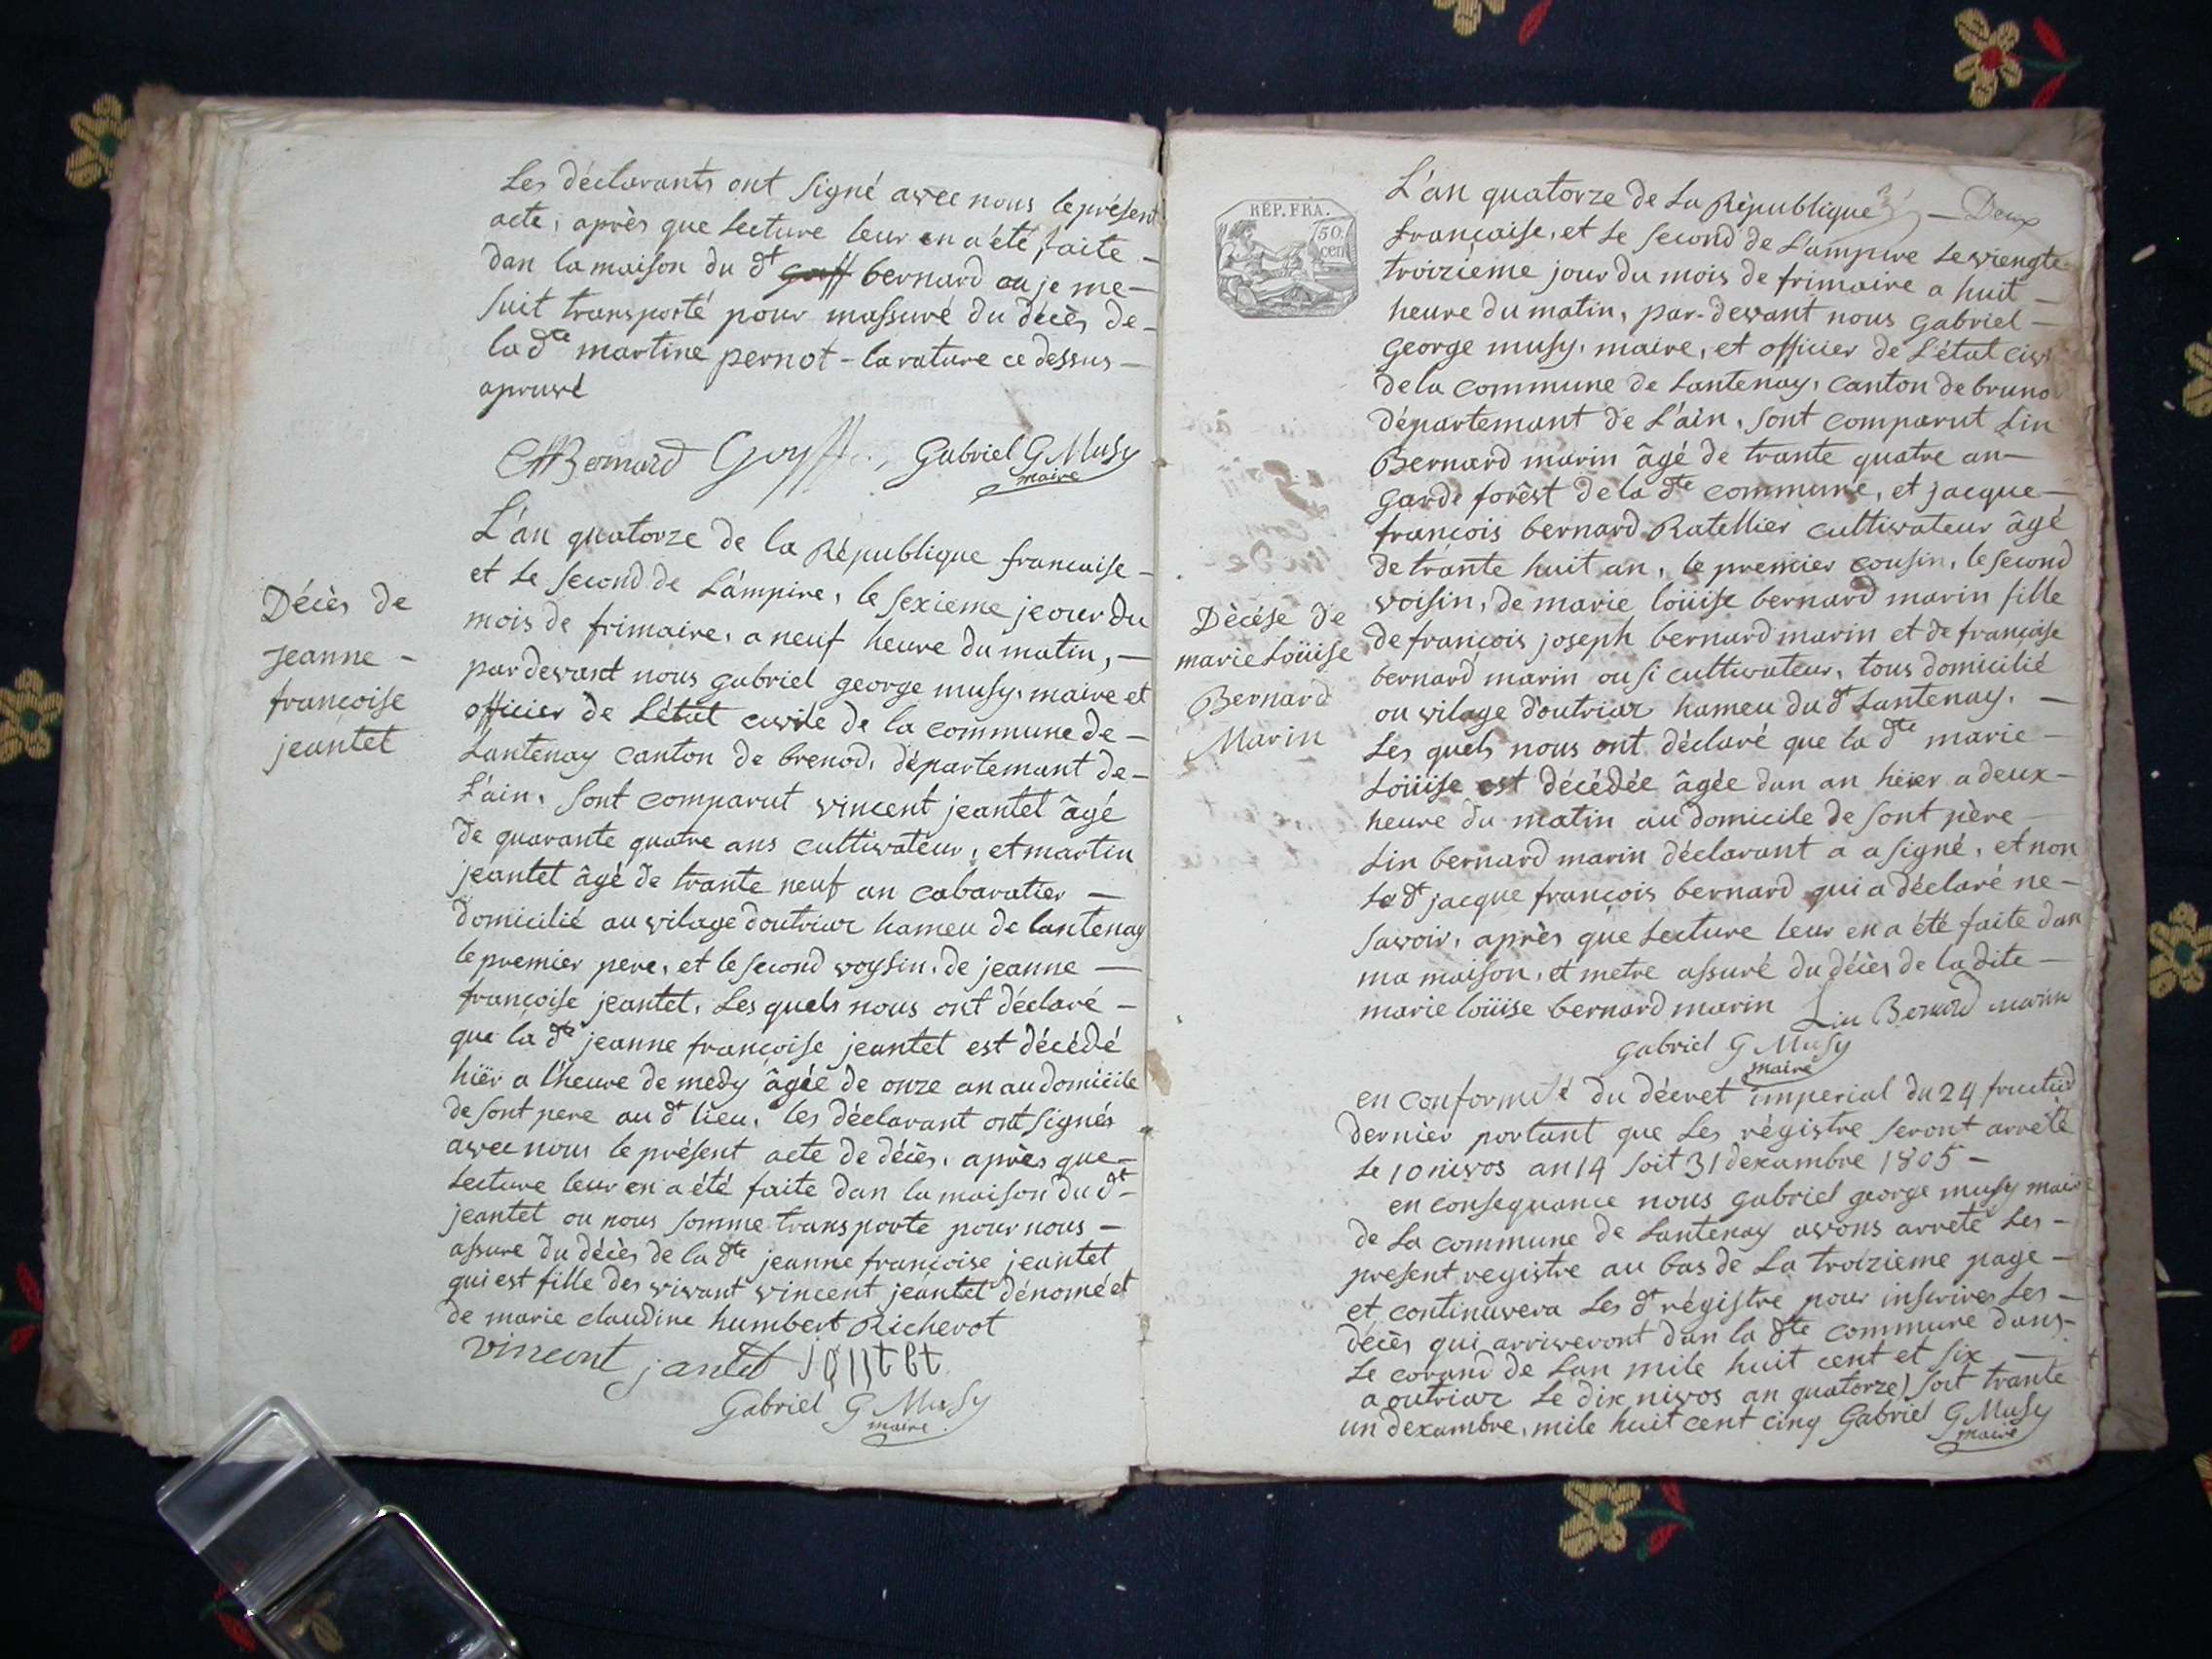 Les déclarants ont signé avec nous le présent
acte, après que lecture leur en a été faite –
dan la maison du dt goff bernard ou je me –
suit transporté pour massuré du décès de –
la dte martine pernot – la rature ce dessus –
apruvé
Bernard Goyff Gabriel G Musy
maire
Décès de
jeanne –
françoise
jeantet
L'an quatorze de la République francaise –
et le second de L'ampire, le sexieme jeour du
mois de frimaire, a neuf heure du matin, –
pardevant nous gabriel george musy, maire et
officier de L'état civile de la commune de –
Lantenay canton de brenod, département de –
L'ain, sont comparut vincent jeantet âgé
de quarante quatre ans cultivateur, et martin
jeantet âgé de trante neuf an cabaratier –
domicilié au vilage doutriaz hameu de lantenay
le premier pere, et le second voysin, de jeanne –
françoise jeantet, Les quels nous ont déclaré –
que la dte jeanne françoise jeantet est décédé
hiër a l'heure de medy âgée de onze an au domicile
de sont pere au dt lieu, les déclarant ont signés
avec nous le présent acte de décès, après que –
lecture leur en a été faite dan la maison du dt –
jeantet ou nous somme transporte pour nous –
assure du décès de la dte jeanne françoise jeantet
qui est fille des vivant vincent jeantet dénomé et
de marie claudine humbert Richerot
vincent jantet jantet
Gabriel G Musy
maire
REP. FRA.
50.
cen
L'an quatorze de La République – Deux
française, et le second de L'ampire le viengte
troizieme jour du mois de frimaire a huit –
heure du matin, par-devant nous gabriel –
george musy, maire, et officier de L'état civi
de la commune de Lantenay, canton de bruno
départemant de L'ain, sont comparut Lin
Bernard marin âgé de trante quatre an –
garde forêst de la dte commune, et jacque –
françois bernard Ratellier cultivateur âgé
de trante huit an, le premier cousin, le second
voisin, de marie loüise bernard marin fille
de françois joseph bernard marin et de françoise
bernard marin ousi cultivateur, tous domicilié
ou vilage d'outriaz hameu du dt Lantenay. –
Dècése de
marie Loüise
Bernard
Marin
Les quels nous ont déclaré que la dte marie –
Loüise est décédée âgée dun an hier a deux –
heure du matin au domicile de sont père –
Lin bernard marin déclarant a a signé, et non
Le dt jacque françois bernard qui a déclaré ne –
savoir, après que Lecture leur en a été faite dan
ma maison, et metre assuré du décès de la dite –
marie loüise bernard marin Lin Bernard marin
gabriel G Musy
maire
en conformité du décret imperial du 24 fructid
dernier portant que Les régistre seront arrété
Le 10 nivos an 14 soit 31 dexambre 1805 –
en consequance nous gabriel george musy maire
de La commune de Lantenay avons arrete Les –
present registre au bas de La troizieme page –
et continuvera Les dt régistre pour inscrires Les –
décès qui arriveront dan la dte commune dans –
Le corand de Lan mile huit cent et six –
a outriaz Le dix nivos an quatorze) soit trante
un dexambre, mile huit cent cinq Gabriel G Musy
maire